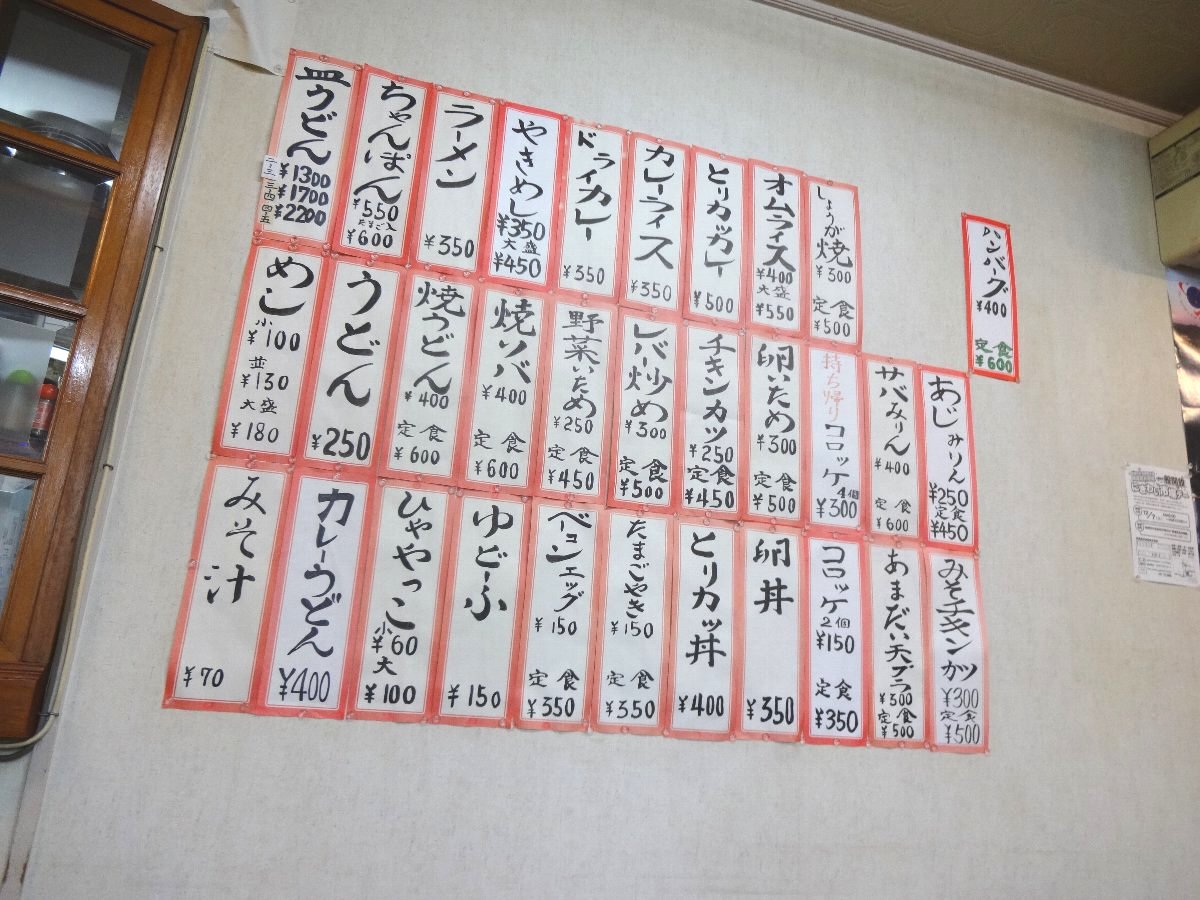 皿うどん
二~三 ¥1300
三~四 ¥1700
四~五 ¥2200
ちゃんぽん
¥550
たまご入
¥600
ラーメン
¥350
やきめし
¥350
大盛
¥450
ドライカレー
¥350
カレーライス
¥350
とりカツカレー
¥500
オムライス
¥400
大盛
¥550
しょうが焼
¥300
定食
¥500
ハンバーグ
¥400
定食
¥600
めし
小
¥100
並
¥130
大盛
¥180
うどん
¥250
焼うどん
¥400
定食
¥600
焼ソバ
¥400
定食
¥600
野菜いため
¥250
定食
¥450
レバー炒め
¥300
定食
¥500
チキンカツ
¥250
定食
¥450
卵いため
¥300
定食
¥500
持ち帰り コロッケ
4個
¥300
サバみりん
¥400
定食
¥600
あじみりん
¥250
定食
¥450
みそ汁
¥70
カレーうどん
¥400
ひややっこ
小
¥60
大
¥100
ゆどーふ
¥150
ベーコンエッグ
¥150
定食
¥350
たまごやき
¥150
定食
¥350
とりカツ丼
¥400
卵丼
¥350
コロッケ
2個
¥150
定食
¥350
あまだい天プラ
¥300
定食
¥500
みそチキンカツ
¥300
定食
¥500